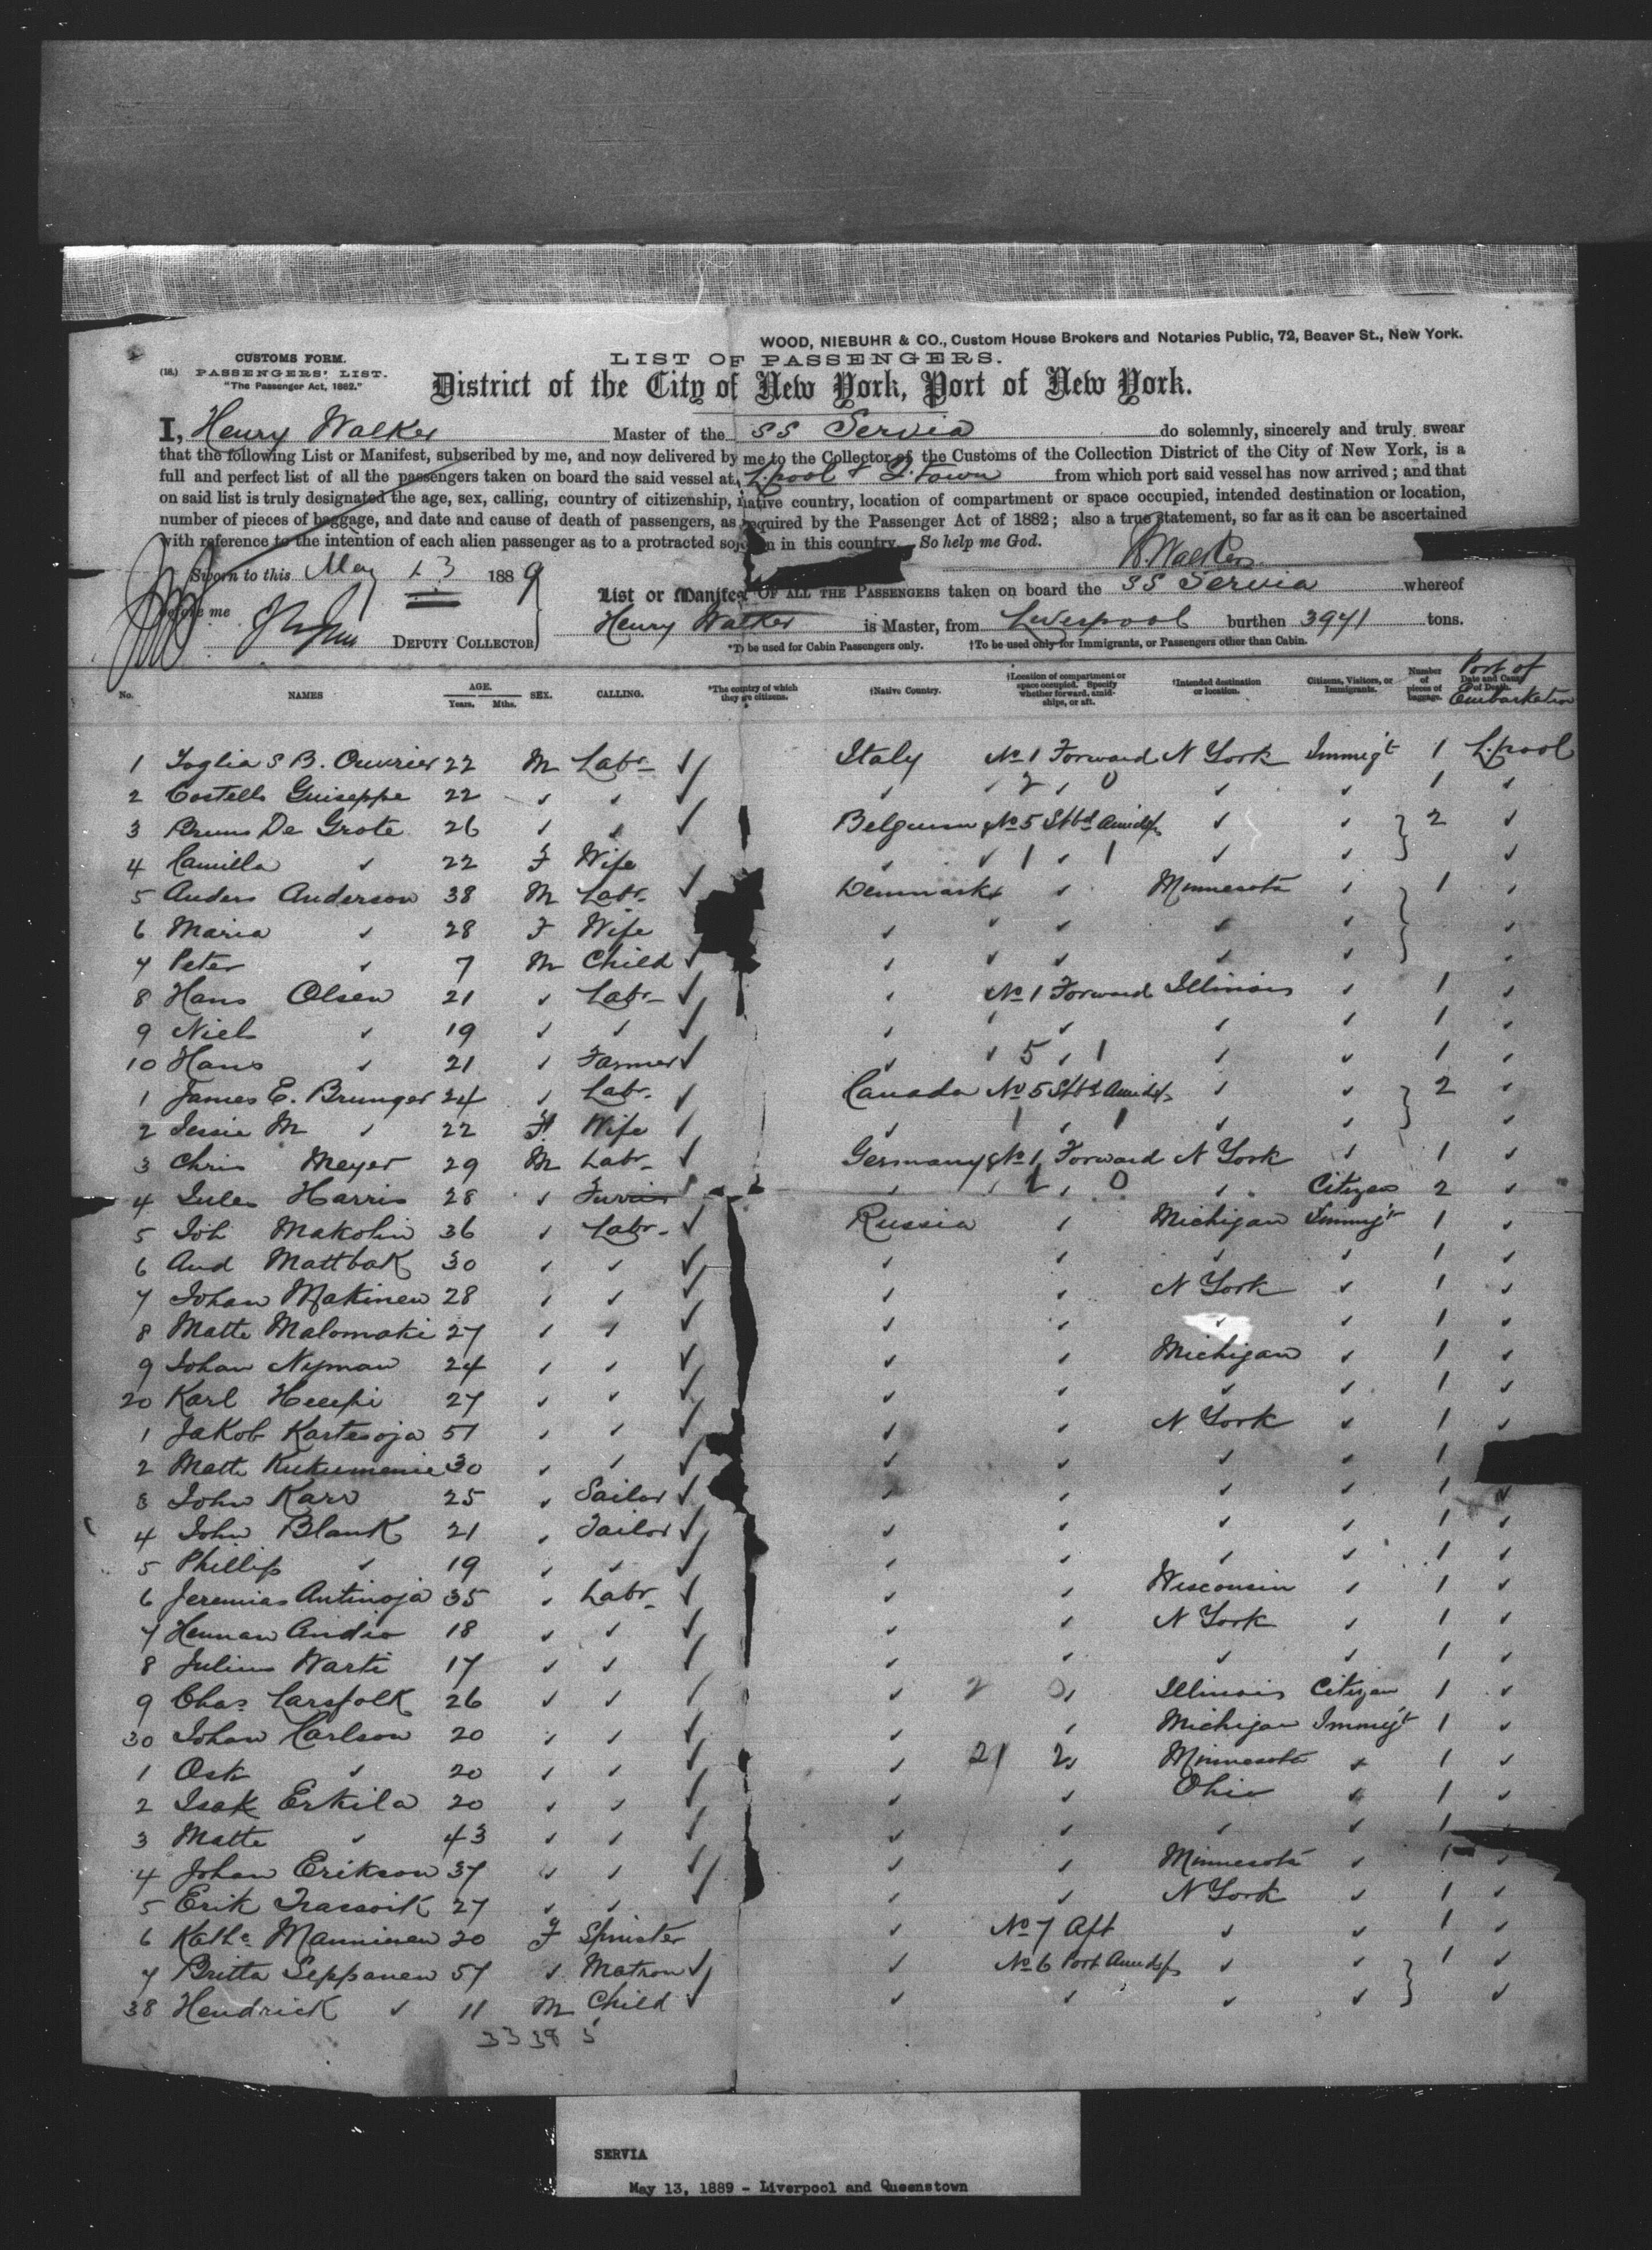 WOOD, NIEBUHR & CO., Custom House Brokers and Notaries Public, 72, Beaver St., New York.
CUSTOMS FORM.
LIST OF PASSENGERS.
(18.) PASSENGERS' LIST.
"The Passenger Act, 1882."
District of the City of New York, Port of New York.
I, Henry Walker Master of the SS Servia do solemnly, sincerely and truly swear
that the following List or Manifest, subscribed by me, and now delivered by me to the Collector of the Customs of the Collection District of the City of New York, is a
full and perfect list of all the passengers taken on board the said vessel at L.pool & Q.town from which port said vessel has now arrived; and that
on said list is truly designated the age, sex, calling, country of citizenship, native country, location of compartment or space occupied, intended destination or location,
number of pieces of baggage, and date and cause of death of passengers, as required by the Passenger Act of 1882; also a true statement, so far as it can be ascertained
with reference to the intention of each alien passenger as to a protracted sojourn in this country. So help me God.
H. Walker
Sworn to this May 13 1889
before me
DEPUTY COLLECTOR
List or Manifest OF ALL THE PASSENGERS taken on board the SS Servia whereof
Henry Walker is Master, from Liverpool burthen 3941 tons.
*To be used for Cabin Passengers only. †To be used only for Immigrants, or Passengers other than Cabin.
No. NAMES AGE. Years. Mths. SEX. CALLING. *The country of which they are citizens. †Native Country. †Location of compartment or space occupied. Specify whether forward, amidships, or aft. †Intended destination or location. Citizens, Visitors, or Immigrants. Number of pieces of baggage. Date and Cause of Death. Port of Embarkation
1 Foglia S B. Ouvrier 22 M Labr Italy No 1 Forward N York Immigt 1 L.pool
2 Costello Guiseppe 22 ✓ ✓ ✓ ✓ 2 ✓ 0 ✓ ✓ 1 ✓
3 Bruno De Grote 26 ✓ ✓ Belgium No 5 Stbd Amidps ✓ ✓ 2 ✓
4 Camilla ✓ 22 F Wife ✓ ✓ 1 ✓ 1 ✓ ✓ ✓
5 Anders Anderson 38 M Labr Denmark ✓ ✓ Minnesota ✓ 1 ✓
6 Maria ✓ 28 F Wife ✓ ✓ ✓ ✓ ✓ ✓
7 Peter ✓ 7 M Child ✓ ✓ ✓ ✓ ✓ ✓
8 Hans Olsen 21 ✓ Labr ✓ No 1 Forward Illinois ✓ 1 ✓
9 Niels ✓ 19 ✓ ✓ ✓ ✓ ✓ ✓ ✓ 1 ✓
10 Hans ✓ 21 ✓ Farmer ✓ ✓ 5 ✓ 1 ✓ ✓ 1 ✓
1 James E. Brunger 24 ✓ Labr Canada No 5 Stbd Amidps ✓ ✓ 2 ✓
2 Jessie M ✓ 22 F Wife ✓ 1 ✓ 1 ✓ ✓ ✓
3 Chris Meyer 29 M Labr Germany No 1 Forward N York ✓ 1 ✓
4 Jules Harris 28 ✓ Furrier ✓ ✓ 1 ✓ 0 ✓ Citizen 2 ✓
5 Joh Makolin 36 ✓ Labr Russia ✓ Michigan Immigt 1 ✓
6 And Mattbak 30 ✓ ✓ ✓ ✓ ✓ ✓ 1 ✓
7 Johan Makinen 28 ✓ ✓ ✓ ✓ N York ✓ 1 ✓
8 Matte Malomaki 27 ✓ ✓ ✓ ✓ ✓ ✓ 1 ✓
9 Johan Nyman 24 ✓ ✓ ✓ ✓ Michigan ✓ 1 ✓
20 Karl 27 ✓ ✓ ✓ ✓ ✓ ✓ 1 ✓
1 Jakob Kartesoja 51 ✓ ✓ ✓ ✓ N York ✓ 1 ✓
2 Matte 30 ✓ ✓ ✓ ✓ ✓ ✓ 1
3 John Karr 25 ✓ Sailor ✓ ✓ ✓ ✓ 1 ✓
4 John Blank 21 ✓ Tailor ✓ ✓ ✓ ✓ 1 ✓
5 Phillip ✓ 19 ✓ ✓ ✓ ✓ ✓ ✓ 1 ✓
6 Jeremias Antinoja 35 ✓ Labr ✓ ✓ Wisconsin ✓ 1 ✓
7 Herman Andio 18 ✓ ✓ ✓ ✓ N York ✓ 1 ✓
8 Julius Warti 17 ✓ ✓ ✓ ✓ ✓ ✓ 1 ✓
9 Chas Carsfolk 26 ✓ ✓ ✓ 2 0 ✓ Illinois Citizen 1 ✓
30 Johan Carlson 20 ✓ ✓ ✓ ✓ Michigan Immigt 1 ✓
1 Osk ✓ 20 ✓ ✓ ✓ 21 2 ✓ Minnesota ✓ 1 ✓
2 Isak Erkila 20 ✓ ✓ ✓ ✓ Ohio ✓ 1 ✓
3 Matte ✓ 43 ✓ ✓ ✓ ✓ ✓ ✓ 1
4 Johan Erikson 37 ✓ ✓ ✓ ✓ Minnesota ✓ 1 ✓
5 Erik Trassvik 27 ✓ ✓ ✓ ✓ N York ✓ 1 ✓
6 Kathe Manninen 20 F Spinster ✓ No 7 Aft ✓ ✓ 1 ✓
7 Britta Seppanen 57 ✓ Matron ✓ No 6 Port Amidps ✓ ✓ 1 ✓
38 Hendrick ✓ 11 M Child ✓ ✓ ✓ ✓ ✓
33 38 5
SERVIA
May 13, 1889 - Liverpool and Queenstown